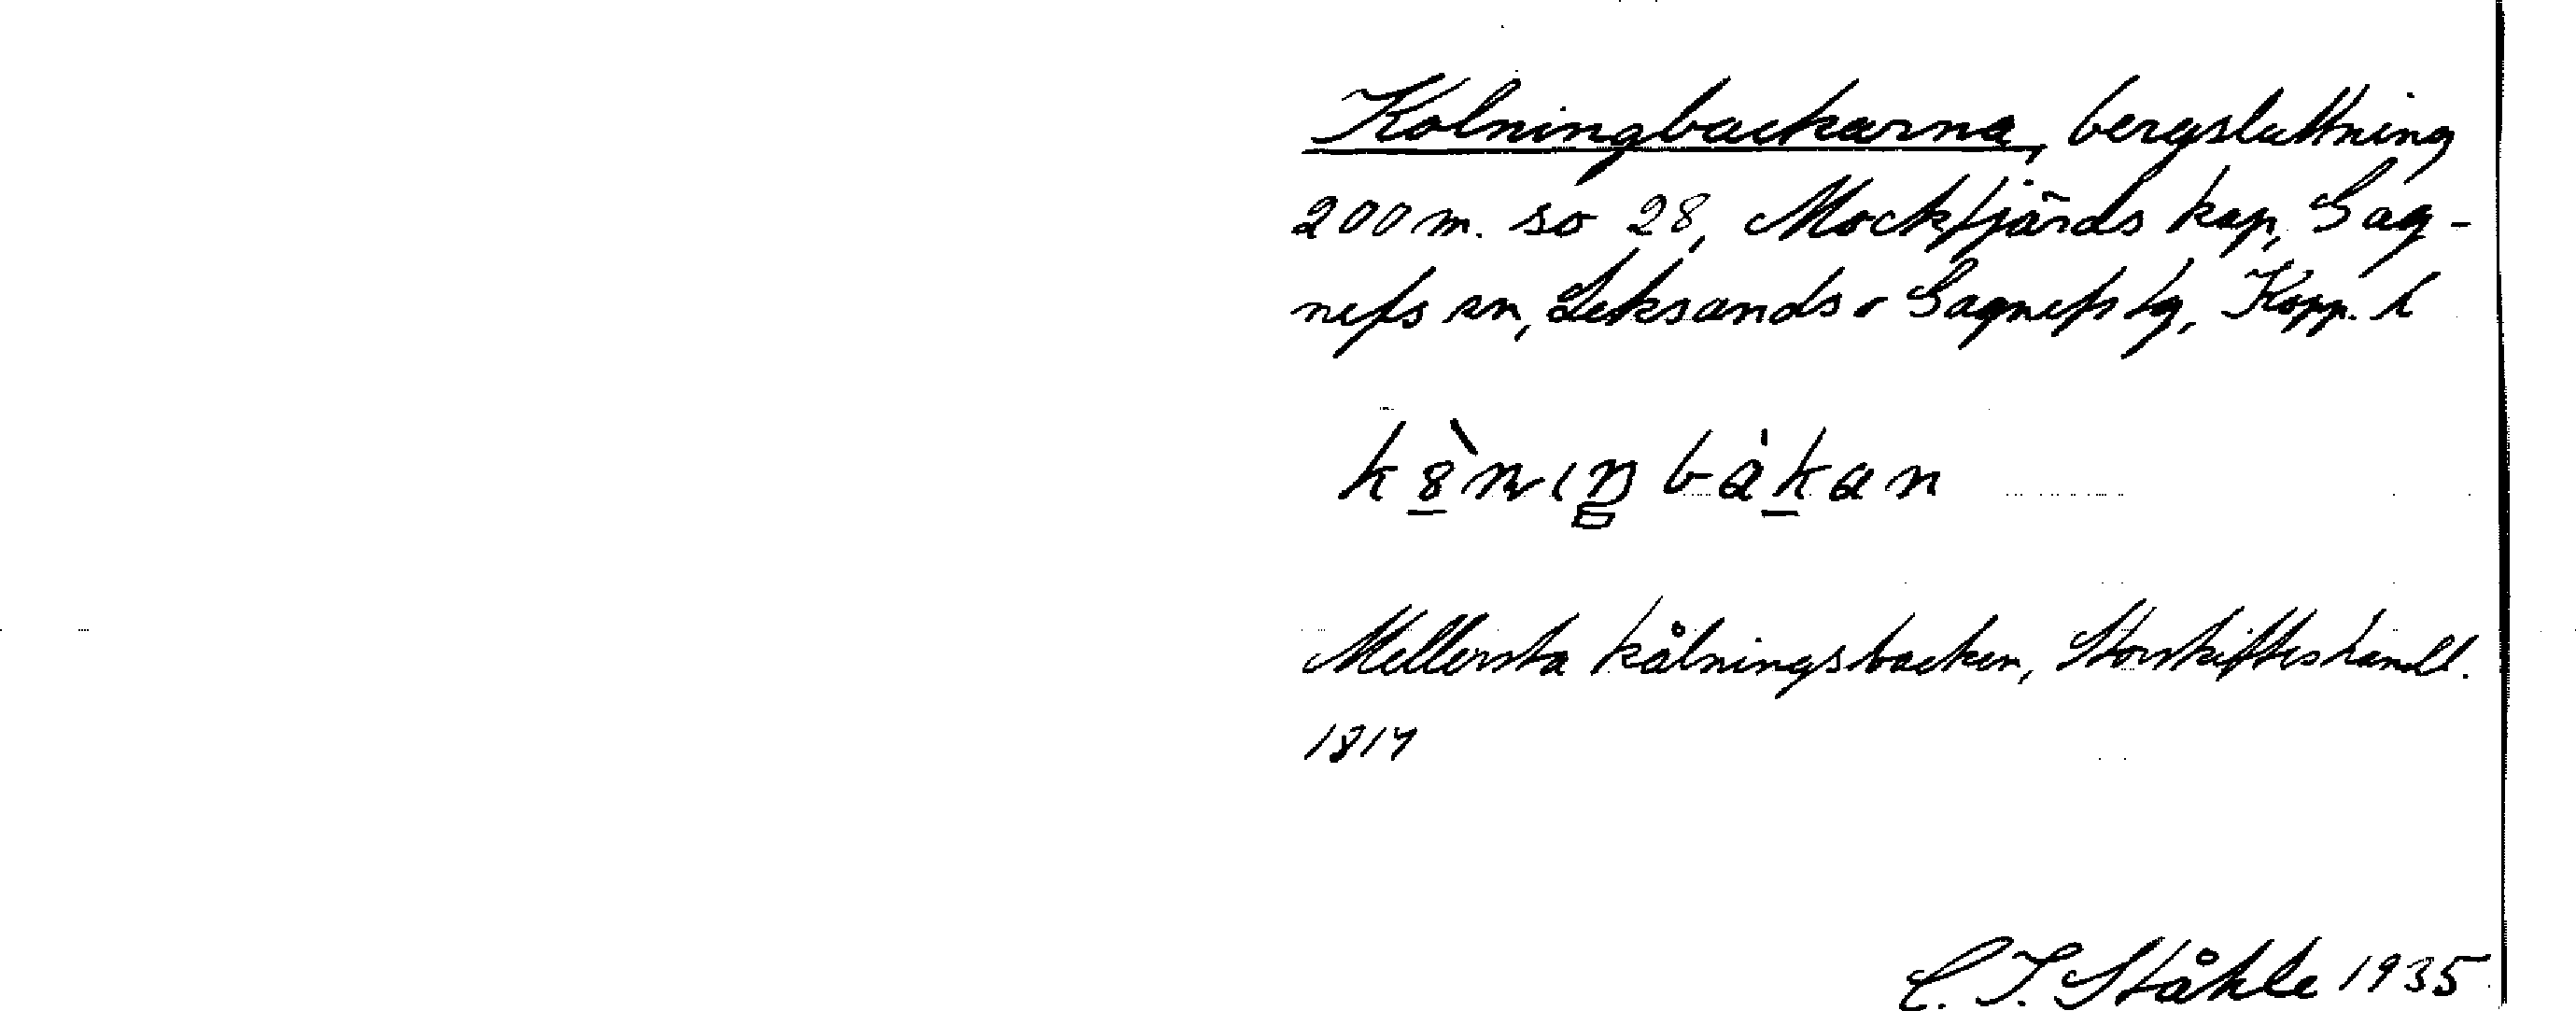 Kolningbackarna, bergsluttning
200 m. so 28, Mockfjärds kap, Gag-
nefs sn, Leksands o Gagnefs tg, Kopp. l
Mellersta kålningsbacken, Storskifteshandl.
1817
C. I. Ståhle 1935